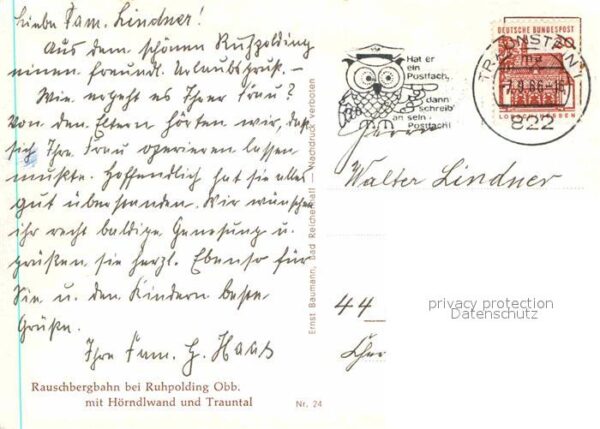 Liebe Fam. Lindner!
Aus dem schönen Ruhpolding
einen freundl. Urlaubsgruß. –
Wie ergeht es Ihrer Frau?
Von den Eltern hörten wir, daß
sich Ihre Frau operieren lassen
mußte. Hoffentlich hat sie alles
gut überstanden. Wir wünschen
ihr recht baldige Genesung u.
grüßen sie herzl. Ebenso für
Sie u. den Kindern beste
Grüße.
Ihre Fam. G. Haas
Rauschbergbahn bei Ruhpolding Obb.
mit Hörndlwand und Trauntal
Nr. 24
Ernst Baumann, Bad Reichenhall — Nachdruck verboten
Hat er
ein
Postfach,
dann
schreib
an sein
Postfach!
DEUTSCHE BUNDESPOST
20
TRAUNSTEIN 1
ma
7.9.66-18
LORSCH/HESSEN
822
Herrn
Walter Lindner
44
privacy protection
Datenschutz